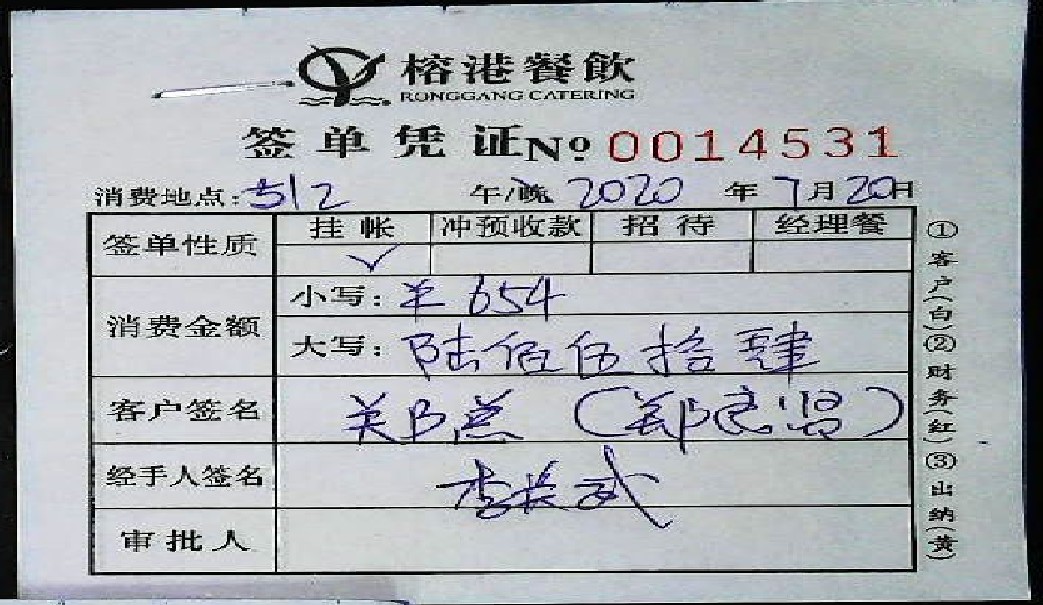 榕港餐飲
RONGGANG CATERING
签单凭证 Nº 0014531
消费地点: 512 午/晚 2020 年 7 月 20 日
签单性质 挂帐 冲预收款 招待 经理餐
✓
消费金额 小写: ¥ 654
大写: 陆佰伍拾肆
客户签名 郑总 (郑良贤)
经手人签名 李长武
审批人
①客户(白)②财务(红)③出纳(黄)